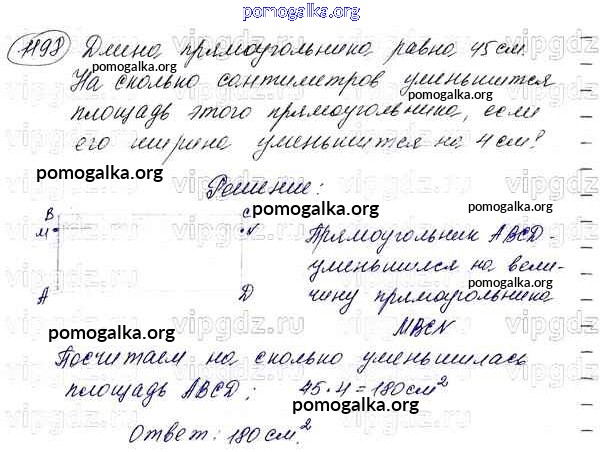 pomogalka.org
1198 Длина прямоугольника равна 45 см.
На сколько сантиметров уменьшится
площадь этого прямоугольника, если
его ширина уменьшится на 4 см?
pomogalka.org
pomogalka.org
Решение:
pomogalka.org
B C
pomogalka.org
M N
A D
Прямоугольник ABCD
уменьшился на вели-
чину прямоугольника
pomogalka.org
MBCN
pomogalka.org
Посчитаем на сколько уменьшилась
площадь ABCD: 45 · 4 = 180 см²
pomogalka.org
Ответ: 180 см.²
pomogalka.org
vipgdz.ru